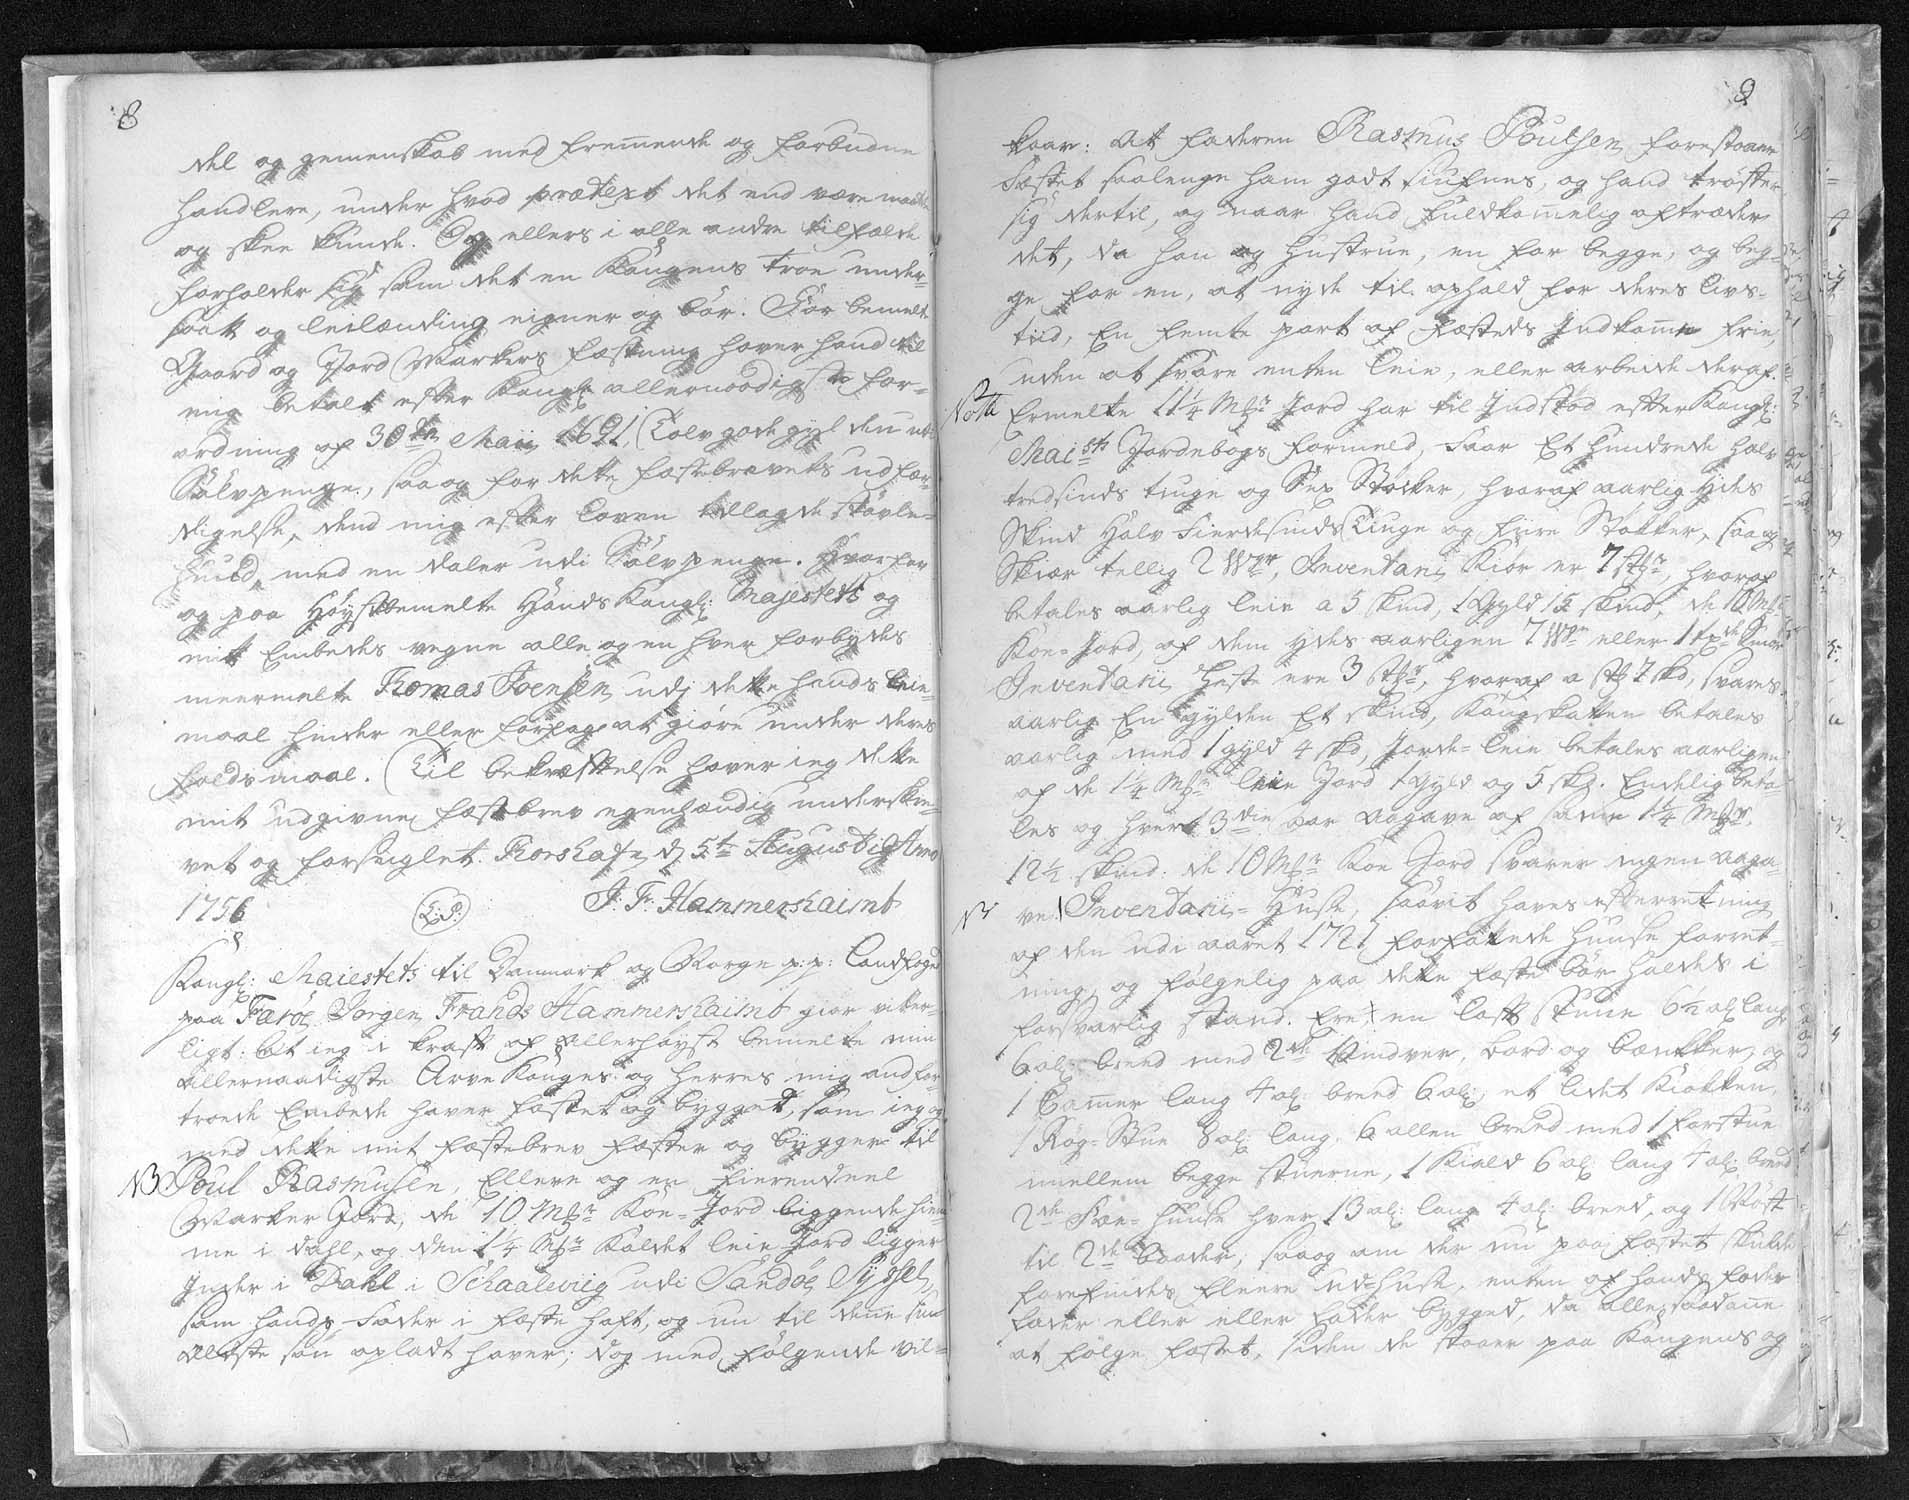 8
del og gemenskab med fremmende og forbudne
handlere, under hvad prætext det end være maatte
og skee kunde. Og ellers i alle andre tilfælde
forholder sig som det en Kongens troe under-
saatt og leilænding eigner og bør. For bemelte
Gaard og Jord Markers fæstning haver hand til
mig betalt efter Kongl: allernaadigste for-
ordning af 30te Maii 1691, Tolv gode gyl den udi
Sölvpenge, saa og for dette fæstebrevets udfær-
digelse, dend mig efter loven tillagde störle-
huud, med en daler udi Sölvpenge. Hvorfor
og paa Höystbemelte Hands Kongl: Majestets og
mit Embedes vegne alle og en hver forbydes
meermelte Thomas Joensen udj dette hands leie-
maal hinder eller forfang at giöre under deres
faldsmaal. Til bekræftelse haver ieg dette
mit udgivne fæstebrev egenhændig underskre-
vet og forseiglet. Thorshafn, d 5te Augusti Anno
1756 (L:S:) J: F: Hammershaimb
Kongl: Maiestets til Danmark og Norge p:p: Landfoged
paa Færöe Jörgen Frands Hammershaimb giör vitter-
ligt: at ieg i kraft af allerhöyst bemelte min
allernaadigste Arve Konges og Herres mig anfor-
troede Embede haver fæstet og bygget, som ieg og
med dette mit fæstebrev fæster og bygger til
NB Poul Rasmusen, Elleve og en fierendeel
Marker Jord, de 10 Mk: Kōe-Jord liggende hiem-
me i dahl, og den 1 1/4 Mk: kaldet leie Jord ligger
Inder i Dahl i Schaalewiig udi Sandöe Sÿssel,
som hands Fader i fæste haft, og nu til denne sin
ældste sön opladt haver; dog med følgende vil-

9
kaar: At faderen Rasmus Poulsen forestaaer
Fæstet saalenge ham godt siufnes, og hand tröster
sig dertil, og naar hand fuldkommelig aftræder
det, da han og hustrue, en for begge, og beg-
ge for en, at nyde til ophald for deres livs-
tiid, En femte part af Fæsteds Indkomme frie,
uden at svare enten leie, eller arbeide deraf.
Nota Ermelte 11 1/4 Mk: Jord har til Indstöd efter Kongl:
Mai:sts Jordebogs formeld, Faar Et hundrede halv
tredsinds tiuge og Sex Stöcker, hvoraf aarlig ydes
Skind Halv Fierdesinds Tiuge og fiire Stökker, saa og
Skiær tellig 2 W:, Inventarii Kiör er 7 st:, hvoraf
betales aarlig leie a 5 skind, 1 Gyld 15 skind, de 10 Mk:
Koe-Jord, af dem ydes aarligen 7 W: eller 1 td Smör
Inventarii Heste ere 3 st:, hvoraf a st: 7 skd, svares
aarlig En gylden Et skind, Kongskatten betales
aarlig med 1 gyld 4 skd, Jorde-leie betales aarligen
af de 1 1/4 Mk: leie Jord 1 Gyld og 5 skd. Endelig beta-
les og hvert 3die aar Aagave af samme 1 1/4 Mk:
12 1/2 skind: de 10 Mk: Koe Jord svarer ingen aaga-
NB ve. Inventarii-Huse, saavit haves efterretning
af den udi aaret 1721 forfattede huuse forret-
ning, og følgelig paa dette fæste bör holdes i
forsvarlig stand. Ere: en loft stuue 6 1/2 al: lang
6 al: breed med 2de Vindver, bord og bænkker, og
1 Camer lang 4 al: breed 6 al:, et lidet Kiökken,
1 Rög-Stue 8 al: lang, 6 allen breed med 1 forstue
imellem begge stuerne, 1 Kield 6 al: lang 4 al: breed
2de Koe-huuse hver 13 al: lang 4 al: breed, og 1 Nöst
til 2de baader, saa og om der nu paa fæstet skulde
forefindes fleere ud-huse, enten af hands fader
fader eller eller fader bygged, da alle saadanne
at følge fæstet, siden de staaer paa Kongens og